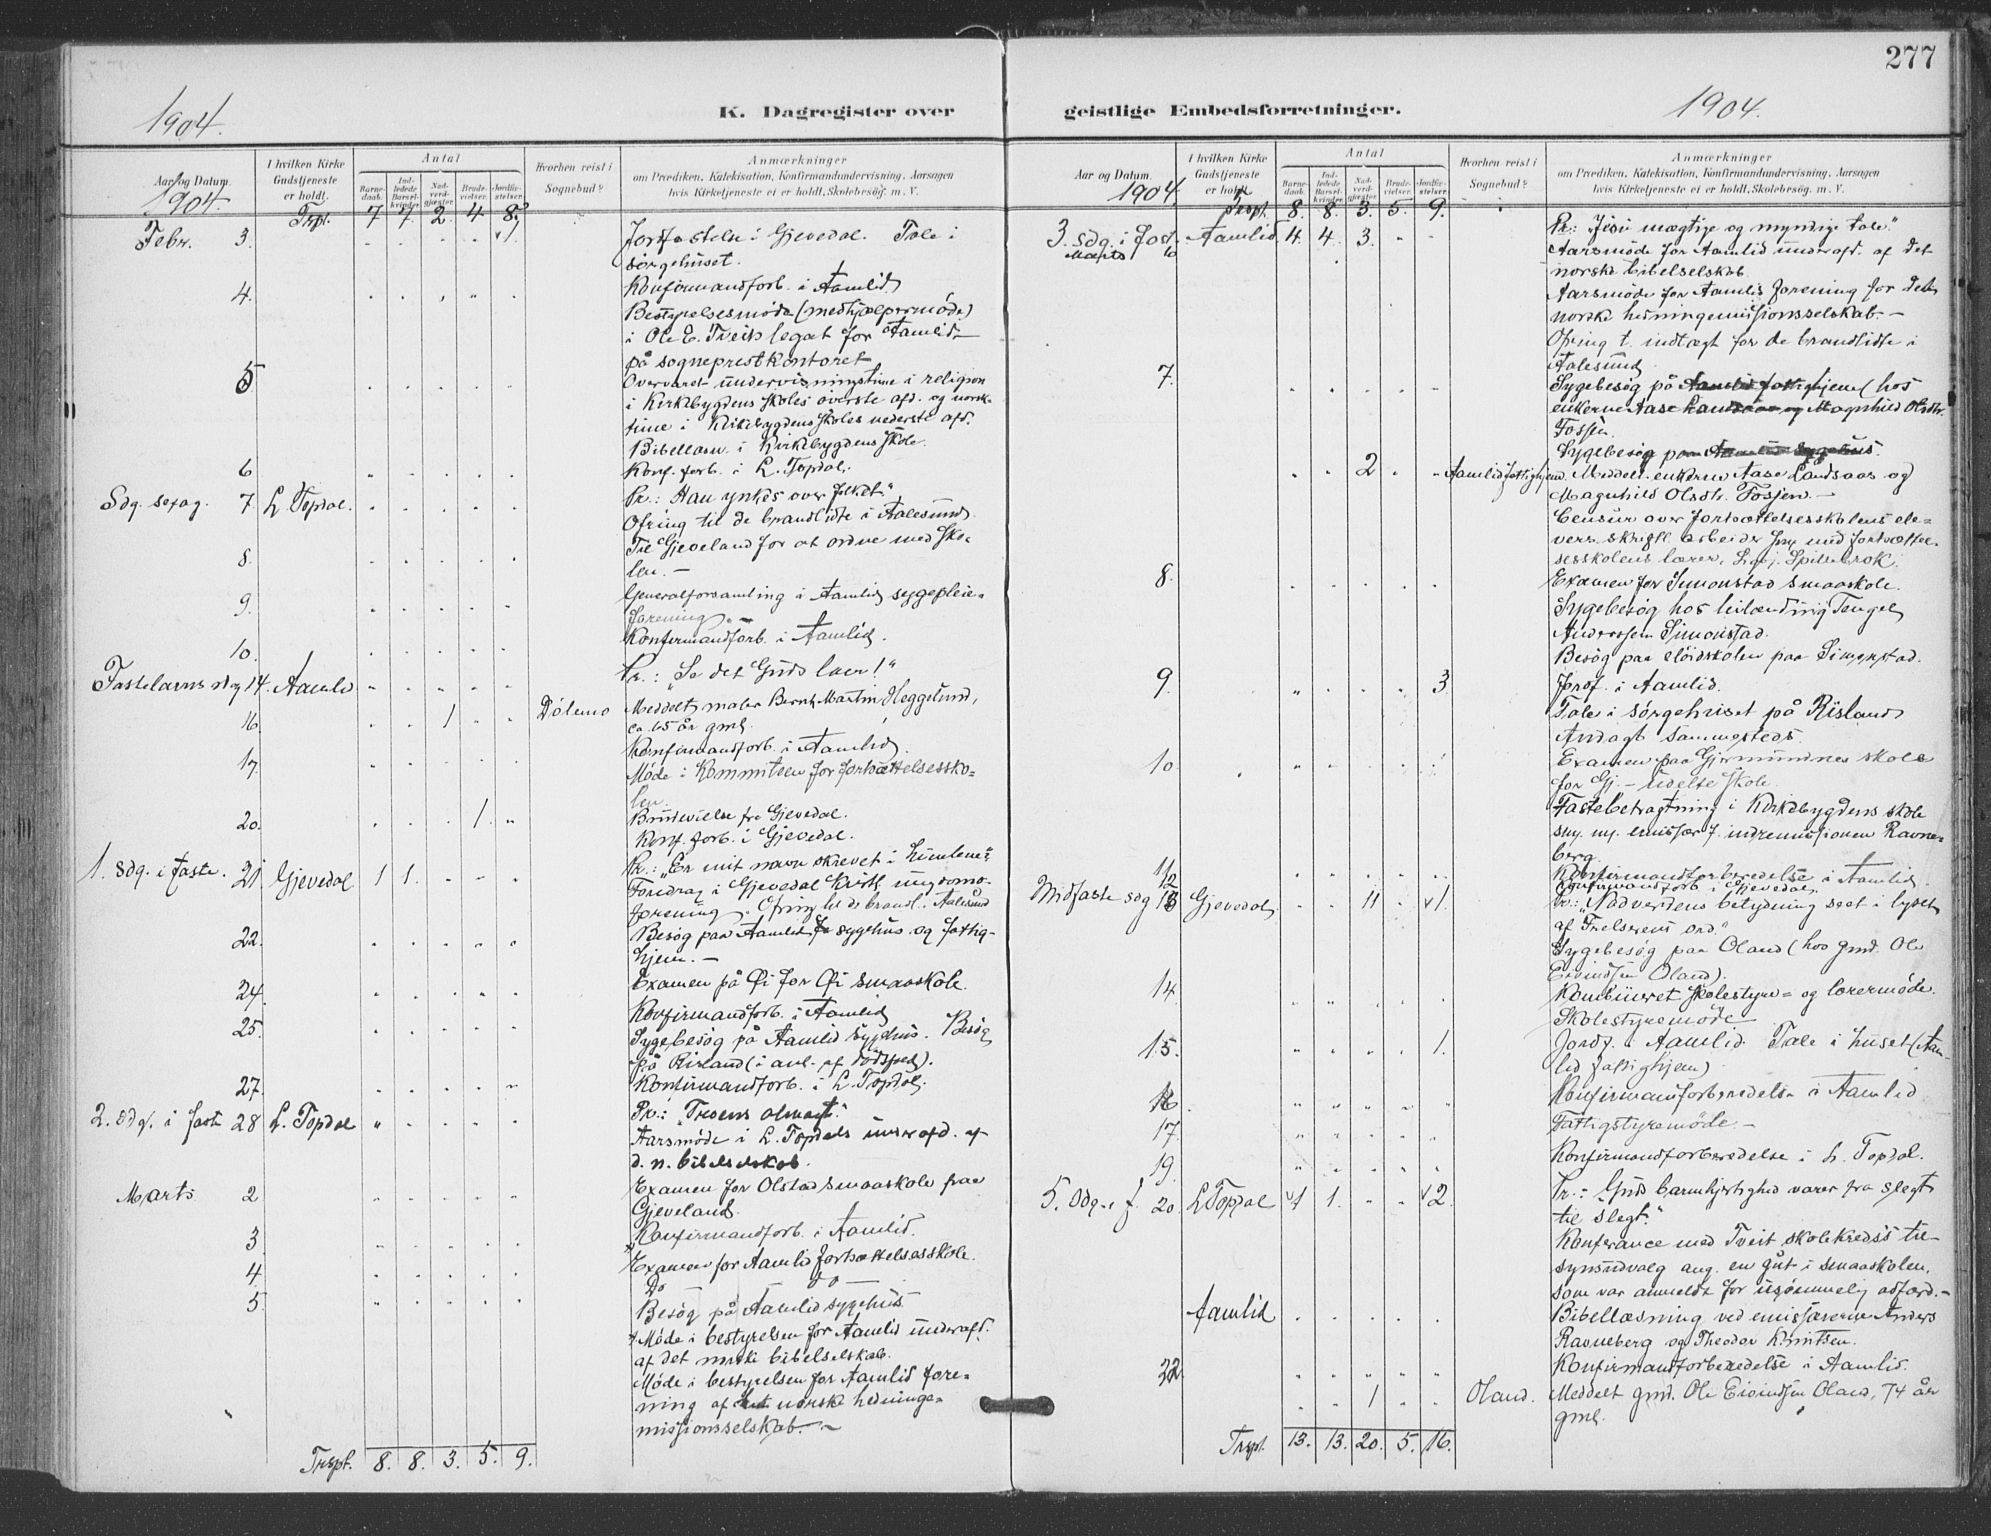 277
1904.
K. Dagregister over
geistlige Embedsforretninger.
1904.
Aar og Datum.
I hvilken Kirke Gudstjeneste er holdt.
Antal
Barnedaab.
Indledede Barselkvinder.
Nadverdgjæster.
Brudevielser.
Jordfæstelser.
Hvorhen reist i Sognebud?
Anmærkninger
om Prædiken, Katekisation, Konfirmandundervisning, Aarsagen
hvis Kirketjeneste ei er holdt, Skolebesøg m. V.
1904. Trspt. 7 7 2 4 8
Febr. 3. 1 Jordfæstelse i Gjevedal. Tale i
sørgehuset.
4. Konfirmandforb. i Aamlid
Bestyrelsesmøde (medhjælpermøde)
i Ole E. Tveits legat for Aamlid
på sogneprestkontoret
5 Overværet undervisningstime i religion
i Kirkebygdens skoles øverste afd. og norsk-
time i Kirkebygdens skoles nederste afd.
Bibellæsn. i Kirkebygdens skole.
6 Konf. forb. i L. Topdal.
Sdg. sexag. 7. L. Topdal. Pr.: "Han ynkeds over folket."
Ofring til de brandlidte i Aalesund.
8. Til Gjeveland for at ordne med sko-
len. -
9. Generalforsamling i Aamlid sygepleie-
forening. -
10. Konfirmandforb. i Aamlid.
Fastelavns sdag 14. Aamlid Pr.: "Se det Guds lam!"
16. 1 Dølemo Meddelt maler Bernt Martin Heggelund,
ca. 65 år gml.
Konfirmandforb. i Aamlid.
17. Møde i kommiteen for fortsættelsessko-
len.
20. 1. Brudevielse fra Gjevedal.
Konf. forb. i Gjevedal.
1. Sdg. i faste. 21 Gjevedal 1 1. Pr.: "Er mit navn skrevet i himlene?"
Foredrag i Gjevedal Kristl. ungdoms-
forening. Ofring til de brandl. i Aalesund
22. Besøg paa Aamlid sygehus og fattig-
hjem. -
24. Examen på Øi for Øi smaaskole.
25. Konfirmandforb. i Aamlid
Sygebesøg på Aamlid sygehus. Besøg
på Risland (i anl. af dødsfald).
27. Konfirmandforb. i L. Topdal.
2. Sdg. i faste 28 L. Topdal Pr.: "Troens almagt."
Aarsmøde i L. Topdals underafd. af
d. n. bibelselskab.
Marts 2 Examen for Olstad smaaskole paa
Gjeveland.
3 Konfirmandforb. i Aamlid.
Examen for Aamlid fortsættelsesskole.
4. Do do
5. Besøg på Aamlid sygehus
Møde i bestyrelsen for Aamlid underafd.
af det norske bibelselskab.
Møde i bestyrelsen for Aamlid fore-
ning af det norske hedninge-
missionsselskab. -
Trspt. 8. 8. 3. 5. 9.
Aar og Datum.
I hvilken Kirke Gudstjeneste er holdt.
Antal
Barnedaab.
Indledede Barselkvinder.
Nadverdgjæster.
Brudevielser.
Jordfæstelser.
Hvorhen reist i Sognebud?
Anmærkninger
om Prædiken, Katekisation, Konfirmandundervisning, Aarsagen
hvis Kirketjeneste ei er holdt, Skolebesøg m. V.
1904. Trspt. 8. 8. 3. 5. 9.
3. Sdg. i fast. Marts 6 Aamlid 4. 4. 3. Pr.: "Jesu mægtige og myndige tale."
Aarsmøde for Aamlid underafd. af det
norske bibelselskab.
Aarsmøde for Aamlids forening for det
norske hedningemissionsselskab. -
Ofring t. indtægt for de brandlidte i
Aalesund.
7. Sygebesøg på Aamlid fattighjem (hos
enkerne Aase Landsaas og Magnhild Olsdtr.
Fossen.
Sygebesøg paa Aamlid sygehus.
2 Aamlid fattighjem. Meddelt enkerne Aase Landsaas og
Magnhild Olsdtr. Fossen. -
Censur over fortsættelsesskolens ele-
vers skriftl. arbeider sm. med fortsættel-
sesskolens lærer,
8. Examen for Simonstad smaaskole.
Sygebesøg hos leilænding Tengel
Anderssen Simonstad.
Besøg paa sløidskolen paa Simonstad.
9. 3 Jordf. i Aamlid.
Tale i sørgehuset på Risland
Andagt sammesteds.
10. Examen paa Gjermundnes skole
for Gj. - Udelse skole
Fastebetragtning i Kirkebygdens skole
sm. m. emissær f. indremissionen Ravne-
berg.
12 Konfirmandforberedelse i Aamlid.
Konfirmandforb. i Gjevedal.
Midfaste sdag 13 Gjevedal 11 1. Pr.: "Nadverdens betydning seet i lyset
af Frelserens ord."
Sygebesøg paa Oland (hos gmd. Ole
Eivindsen Oland).
14. Kombineret skolestyre- og lærermøde.
Skolestyremøde
15. 1. Jordf. i Aamlid. Tale i huset (Aam-
lid fattighjem)
16. Konfirmanforberedelse i Aamlid
17. Fattigstyremøde. -
19. Konfirmandforberedelse i L. Topdal.
5. Sdg. i f. 20. L. Topdal 1 1. 2. Pr.: "Guds barmhjertighed varer fra slegt
til slegt."
Konferance med Tveit skolekreds's til-
synsudvalg ang. en gut i smaaskolen,
som var anmeldt for usømmelig adfærd. -
Aamlid Bibellæsning ved emissærerne Anders
Ravneberg og Theodor Knutsen.
22. Konfirmandforberedelse i Aamlid.
1 Oland. Meddelt gmd. Ole Eivindsen Oland, 74 år
gml.
Trspt. 13. 13. 20. 5. 16.